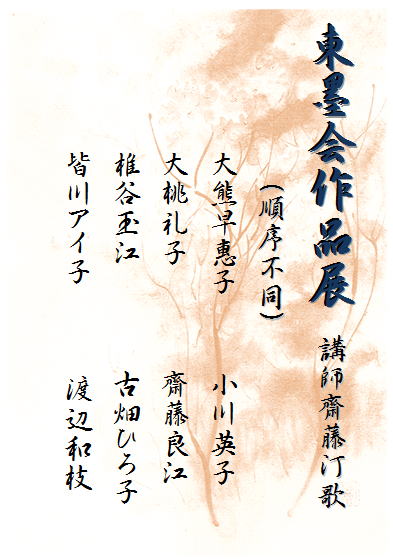 東墨会作品展
講師齋藤汀歌
(順序不同)
大熊早惠子
小川英子
大桃礼子
齋藤良江
椎谷玉江
古畑ひろ子
皆川アイ子
渡辺和枝